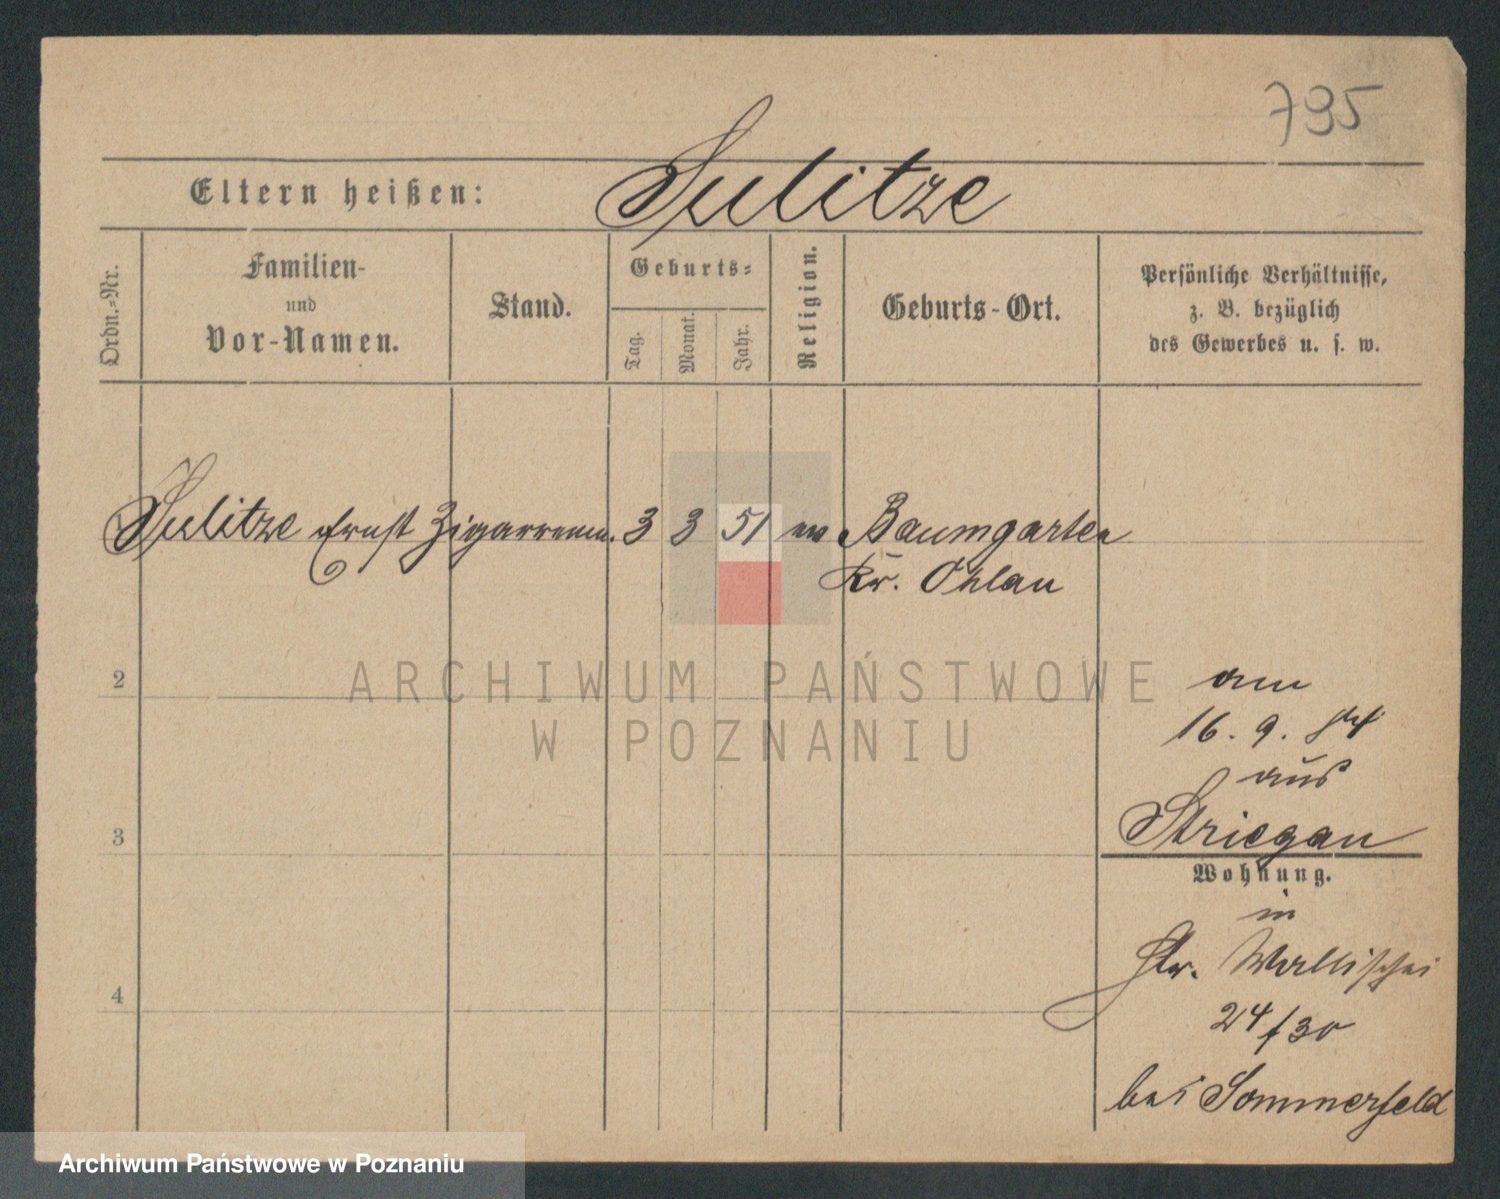 795
Eltern heißen: Sulitze
Ordn.-Nr.
Familien-
und
Vor-Namen.
Stand.
Geburts-
Tag.
Monat.
Jahr.
Religion.
Geburts-Ort.
Persönliche Verhältnisse,
z. B. bezüglich
des Gewerbes u. s. w.
Sulitze Ernst Zigarrenm. 3 3 51 ev Baumgarten
Kr. Ohlau
2
3
4
am
16. 9. 84
aus
Striegau
Wohnung.
in
Wallischei
24/30
bei Sommerfeld
ARCHIWUM PAŃSTWOWE
W POZNANIU
Archiwum Państwowe w Poznaniu